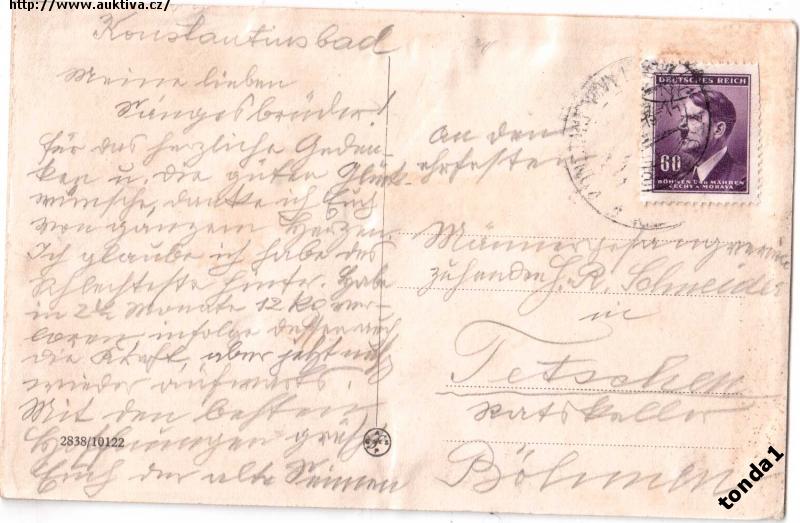 http://www.auktiva.cz/
Konstantinsbad
Meine lieben
Sangesbrüder!
für das herzliche Geden-
ken u. die guten Glück-
wünsche, danke ich Euch
von ganzem Herzen.
Ich glaube ich habe das
schlechteste hinter. Habe
in 2½ Monate 12 kg ver-
loren infolge dessen auch
die Kraft, aber jetzt
wieder aufwärts.
Mit den besten
grüßt
Euch der alte
2838/10122
An den
ehrfesten
Männergesangverein
zuhenden H. R. Schneider
in
Tetschen
Ratskeller
Böhmen
DEUTSCHES REICH
60
BÖHMEN UND MÄHREN
ČECHY A MORAVA
tonda1